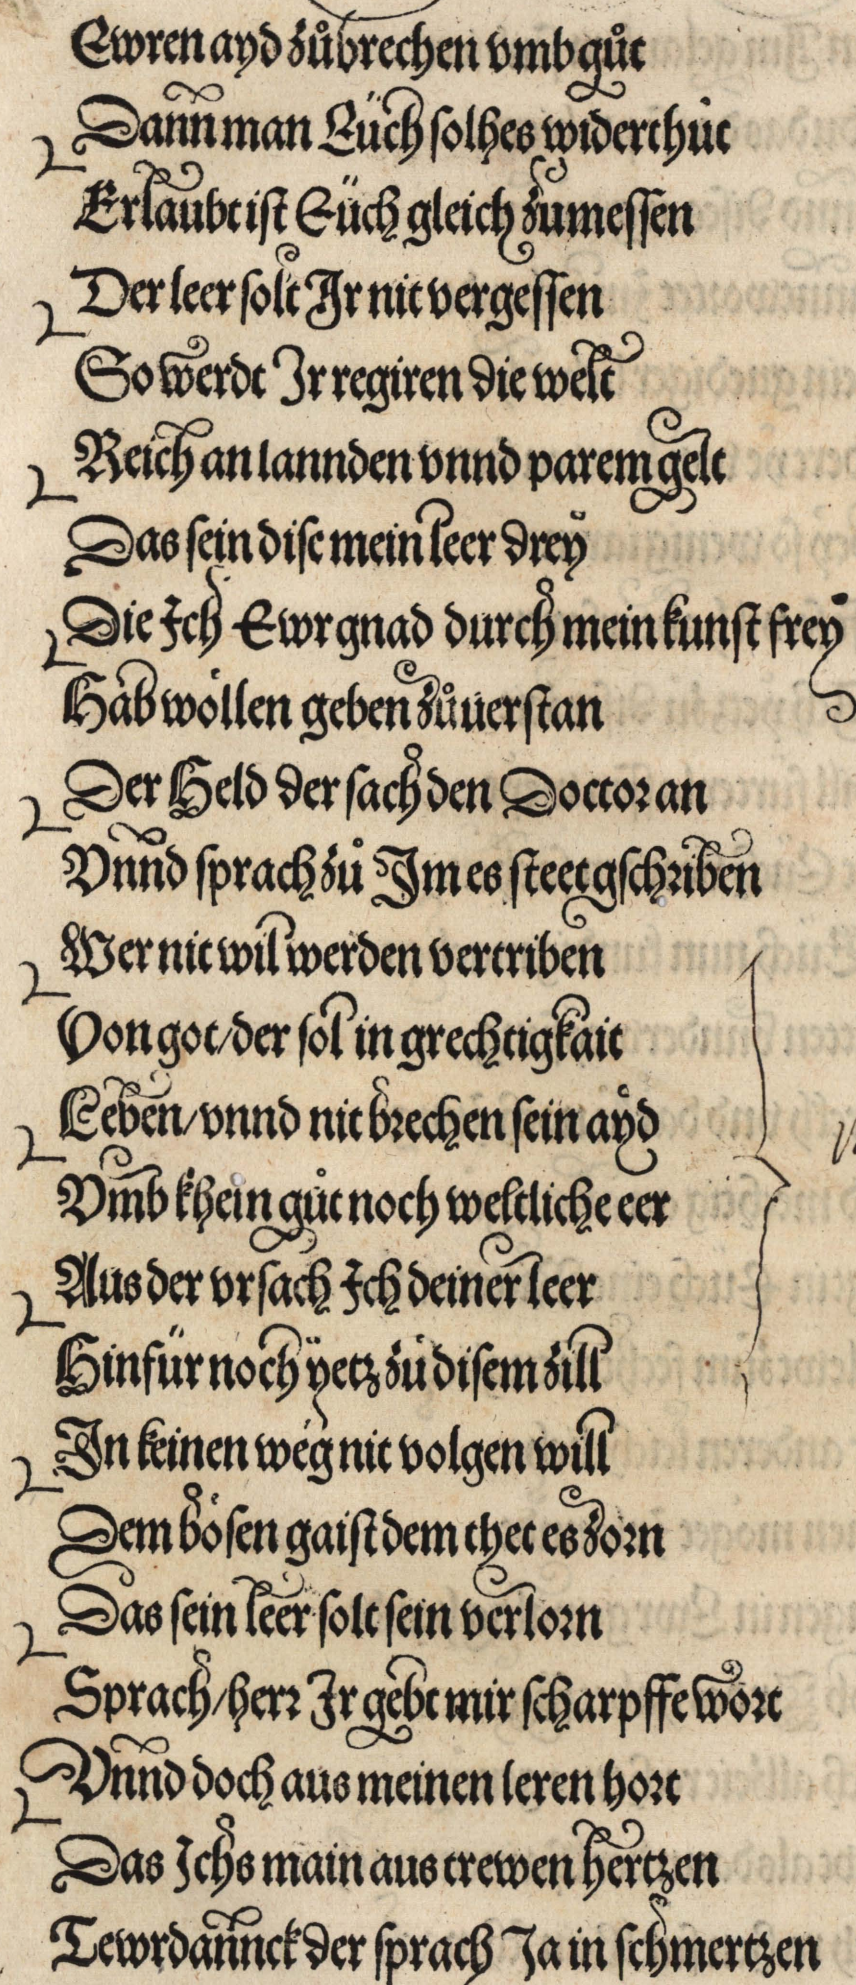 Ewren ayd zůbrechen vmb gůt
Dann man Eüch solhes widerthůt
Erlaubt ist Eüch gleich zumessen
Der leer solt Ir nit vergessen
So werdt Ir regiren die welt
Reich an lannden vnnd parem gelt
Das sein dise mein leer drey
Die Ich Ewr gnad durch mein kunst frey
Hab wöllen geben zůuerstan
Der Held der sach den Doctor an
Vnnd sprach zů Im es steet gschriben
Wer nit wil werden vertriben
Von got/der sol in grechtigkait
Leben/vnnd nit brechen sein ayd
Vmb khein gůt noch weltliche eer
Aus der vrsach Ich deiner leer
Hinfür noch yetz zů disem zill
In keinen weg nit volgen will
Dem bösen gaist dem thet es zorn
Das sein leer solt sein verlorn
Sprach/herr Ir gebt mir scharpffe wort
Vnnd doch aus meinen leren hort
Das Ichs main aus trewen hertzen
Tewrdannck der sprach Ja in schmertzen